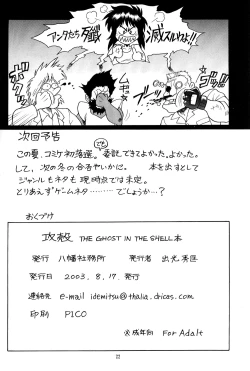 アンタたち殲
滅するわよ!!
ボクッ
ムギュ
次回予告
この夏、コミケ初落選。委託できてよかった。よかった。
して、次の冬の合否やいかに。 本を出すとして
ジャンルもネタも現時点では未定。
とりあえずゲームネタ………でしょうか…?
おくづけ
攻殻 THE GHOST IN THE SHELL本
発行 八幡社務所 発行者 出光秀匡
発行日 2003.8.17.発行
連絡先 e-mail idemitsu@thalia.dricas.com
印刷 PICO
※成年向 For Adalt